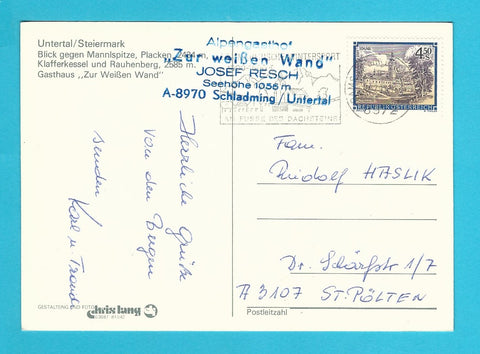 Untertal/Steiermark
Blick gegen Mannlspitze, Placken, 2434 m,
Klafferkessel und Rauhenberg, 2585 m.
Gasthaus ,,Zur Weißen Wand"
Alpengasthof
„Zur weißen Wand"
JOSEF RESCH
Seehöhe 1056 m
A-8970 Schladming / Untertal
AM FUSSE DES DACHSTEINS
4.50
REPUBLIK ÖSTERREICH
Herrliche Grüße
von den Bergen
senden
Fam.
Rudolf HASLIK
Dr. Schärfstr 1/7
A 3107 ST. PÖLTEN
Postleitzahl
GESTALTUNG UND FOTO
chris lang